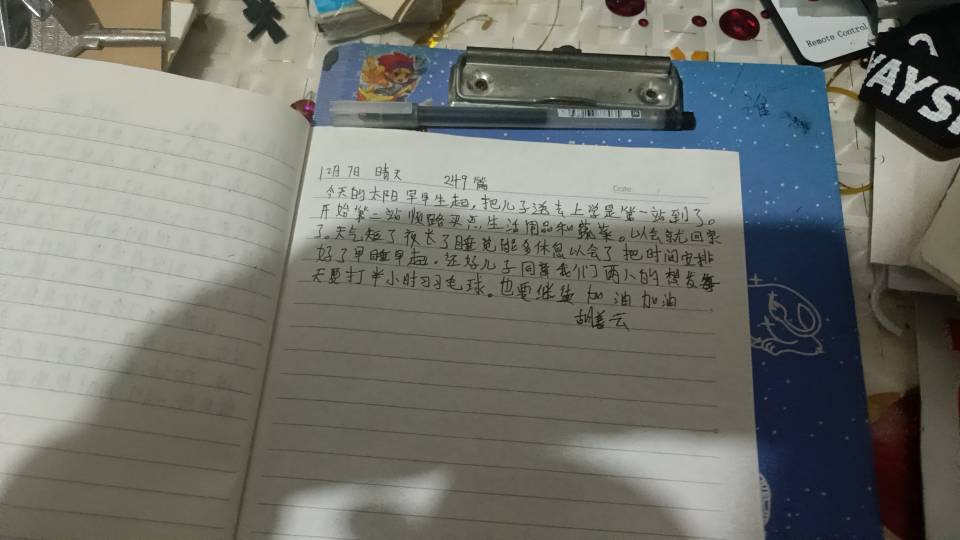 12月7日 晴天 249篇
Date
今天的太阳早早生起,把儿子送去上学是第一站到了。
开始第二站顺路买点生活用品和蔬菜。以会就回家
了。天气短了夜长了睡觉能多休息以会了把时间安排
好了早睡早起。还好儿子同意我们两个的想发每
天要打半小时习习毛球。也要继续加油加油
胡善云
Remote Control
AYS
谁